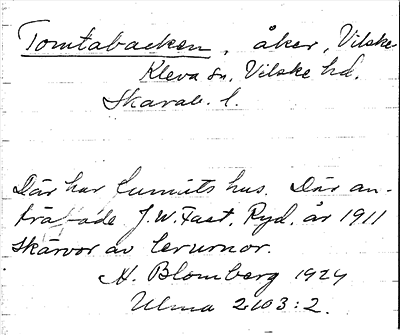 Tomtabacken, åker, Vilske-
Kleva sn, Vilske hd.
Skarab. l.
Där har funnits hus. Där an-
träffade J. W. Fast, Ryd, år 1911
skärvor av lerurnor.
H. Blomberg 1924
Ulma 2403:2.